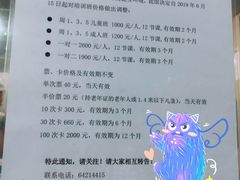 15日起对培训班价格做出调整:
周1、3、5儿童班 1000元/人,12节课,有效期2个月
周1、3、5成人班 1200元/人,12节课,有效期2个月
一对一 2600元/人,12节课,有效期3个月
一对二 1900元/人,12节课,有效期3个月
票、卡价格及有效期不变
单次票 40元,当天有效
半价票 20元(持老年证的老年人或1.4米以下儿童),当天有效
10次卡 300元,有效期为3个月
30次卡 660元,有效期为6个月
100次卡 2000元,有效期为12个月
特此通知,请关注!请大家相互转告
联系电话:64214415